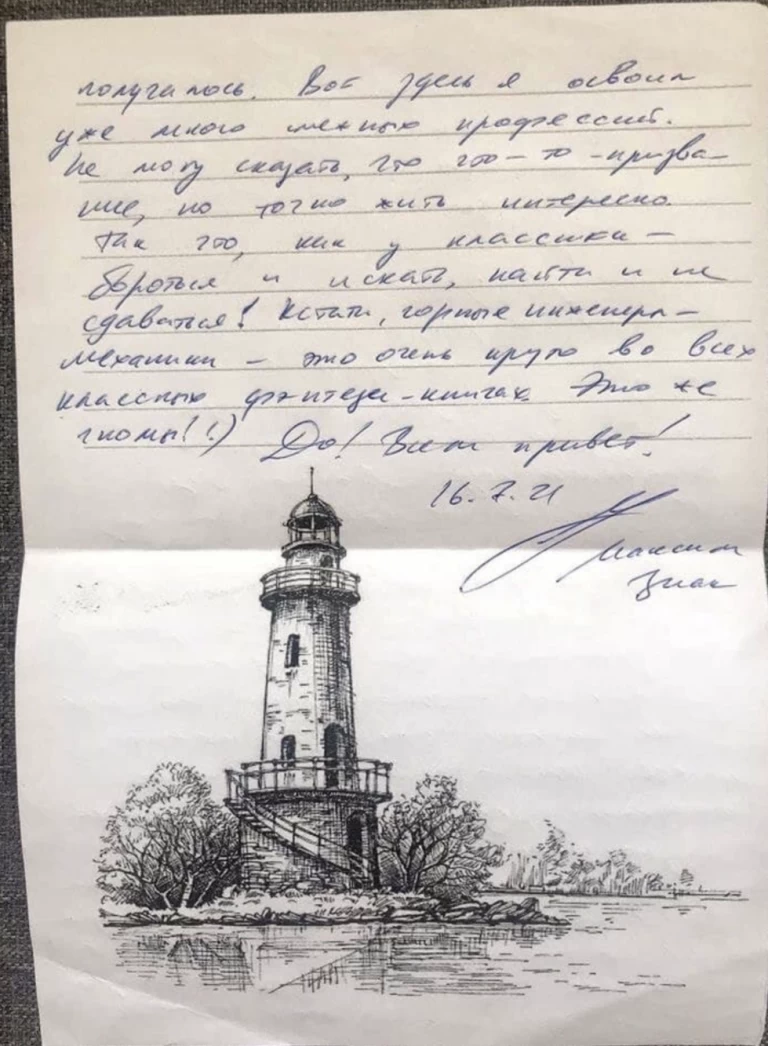 получалось. Вот здесь я освоил
уже много смежных профессий.
Не могу сказать, что это-то -призва-
ние, но точно жить интересно.
Так что, как у классика -
бороться и искать, найти и не
сдаваться! Кстати, горные инженеры-
механики - это очень круто во всех
классных фэнтези-книгах. Это же
гномы! :) До! Всем привет!
16.7.21
Максим
Знак